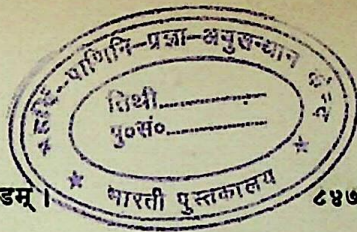 महर्षि-पाणिनि-प्रज्ञा-अनुसन्धान केन्द्र
तिथी
पु०सं०
भारती पुस्तकालय
डम् । ८४७